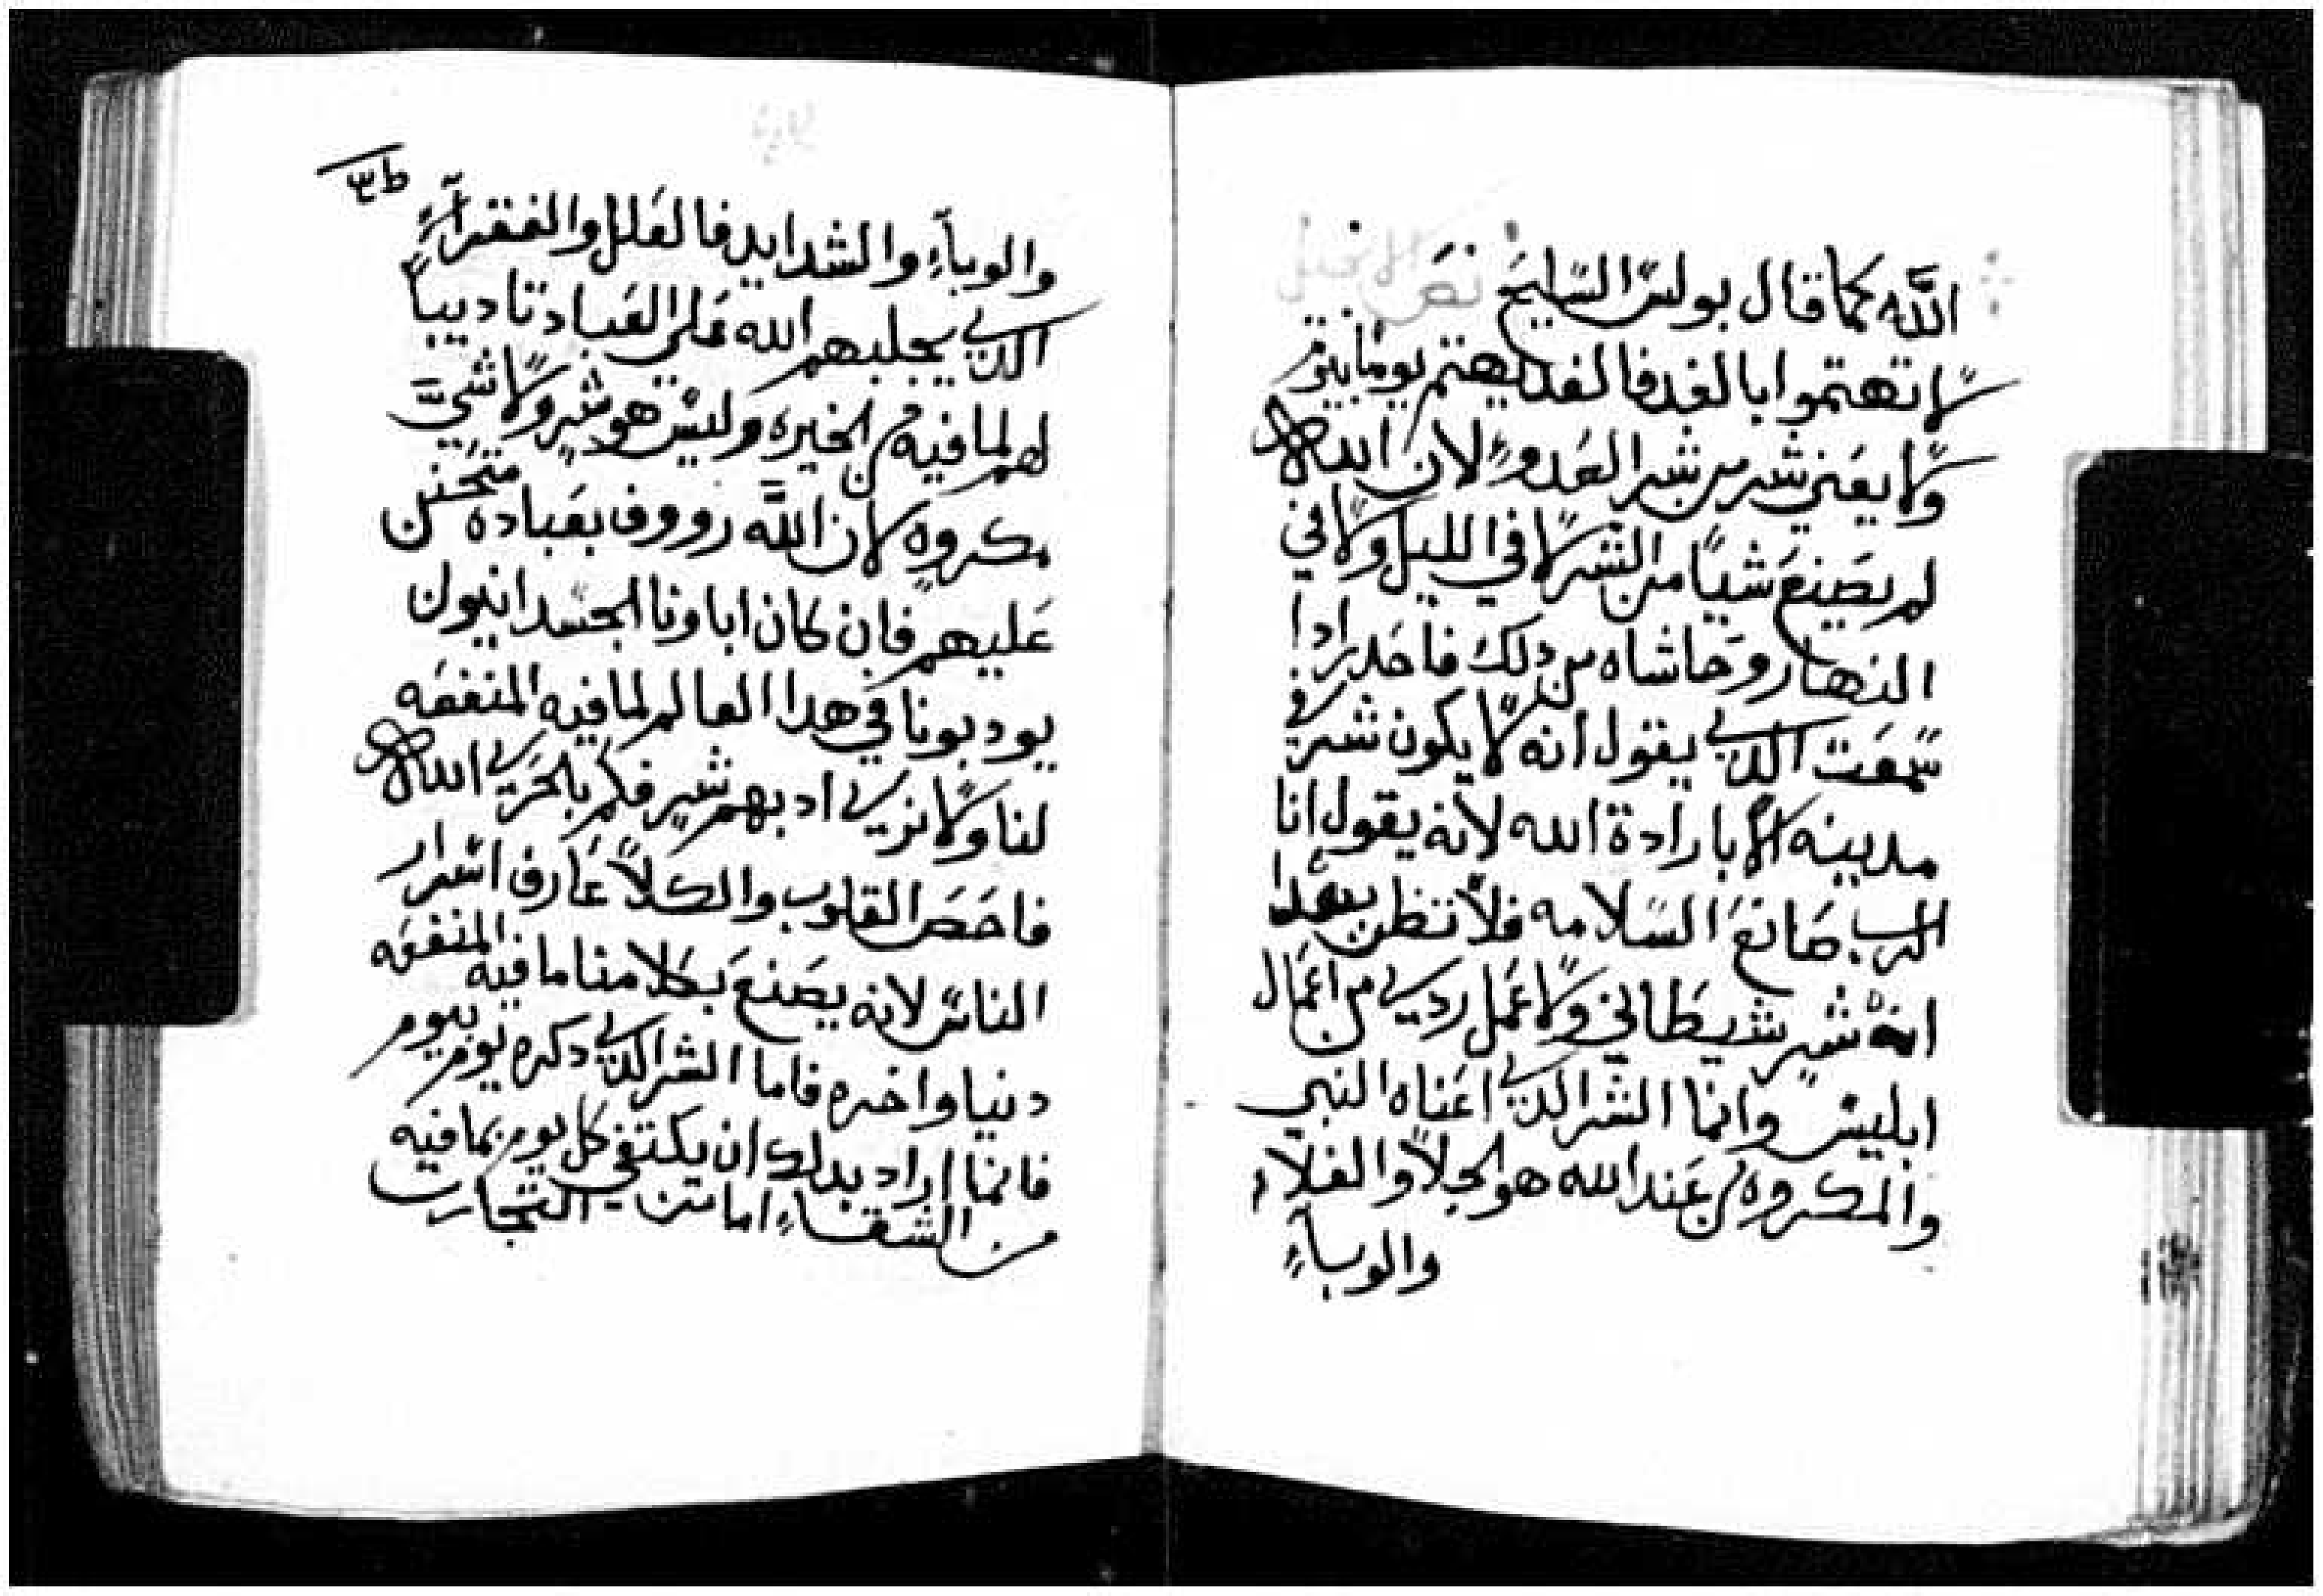 الله كما قال بولس السليح نص الانجيل
لا تهتموا بالغد فالغد يهتم يوما بيوم
ولا يعني شر من شر العدو لان الله
لم يصنع شيا من الشر لا في الليل ولا في
النهار وحاشاه من دلك فاحدر ادا
سمعت الدي يقول انه لا يكون شر في
مدينه الا بارادة الله لانه يقول انا
الرب صانع السلامه فلا تظن بهدا
انه شر شيطاني ولا عمل ردي من اعمال
ابليس وانما الشر الدي اعناه النبي
والمكروه من عند الله هو الجلا والغلاء
والوباء
والوباء والشدايد فالعلل والفقراء
الدي يجلبهم الله على العباد تاديبا
لهم لما فيه من الخيره وليس هو شر ولا شي
مكروه لان الله رووف بعباده متحنن
عليهم فان كان اباونا الجسدانيون
يودبونا في هدا العالم لما فيه المنفعه
لنا ولا نري ادبهم شر فكم بالحري الله
فاحص القلوب والكلا عارف اسرار
الناس لانه يصنع بكلامنا ما فيه المنفعه
دنيا واخره فاما الشر الدي دكره يوم بيوم
فانما اراد بدلك ان يكتفي كل يوم بما فيه
من الشقاء اما التجارب